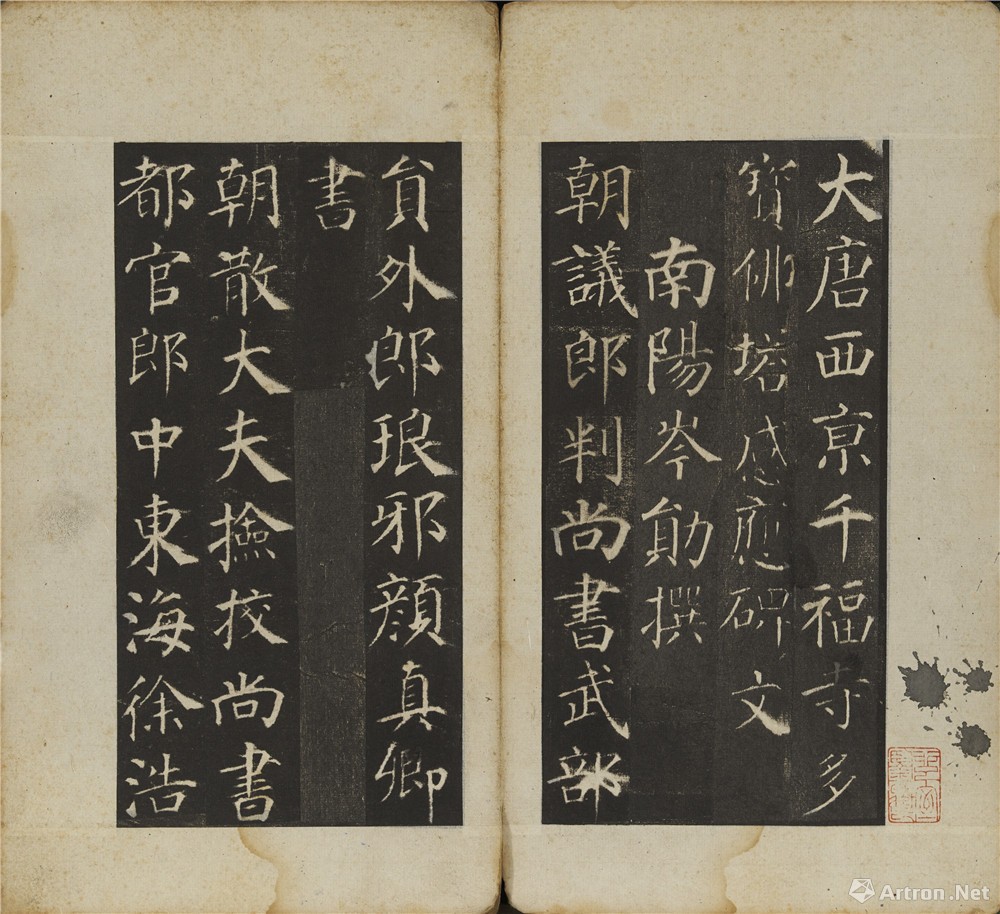 大唐西京千福寺多
寳佛塔感應碑文
南陽岑勛撰
朝議郎判尚書武部
貟外郎琅邪顔真卿
書
朝散大夫撿挍尚書
都官郎中東海徐浩
Artron.Net